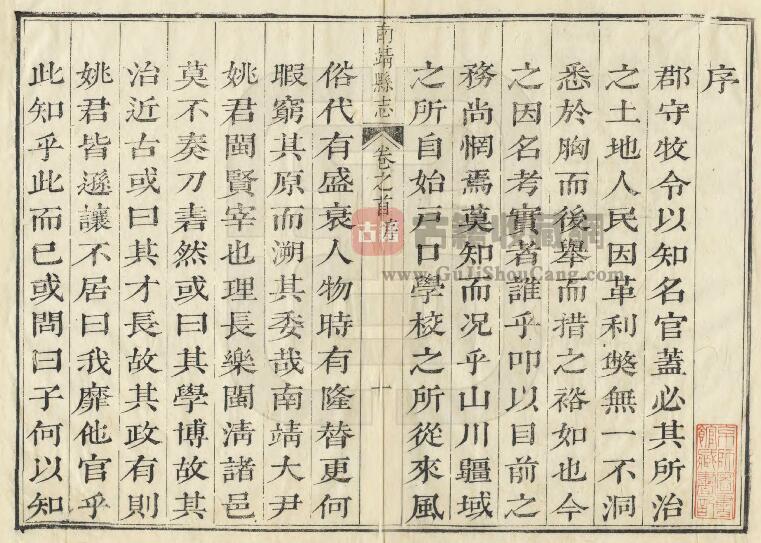 序
郡守牧令以知名官蓋必其所治
之土地人民因革利獘無一不洞
悉於胸而後舉而措之裕如也今
之因名考實者誰乎叩以目前之
務尚惘焉莫知而况乎山川疆域
之所自始戸口學校之所從來風
南靖縣志
卷之首 序
一
俗代有盛衰人物時有隆替更何
暇窮其原而溯其委哉南靖大尹
姚君閩賢宰也理長樂閩清諸邑
莫不奏刀砉然或曰其學博故其
治近古或曰其才長故其政有則
姚君皆遜讓不居曰我靡他官乎
此知乎此而已或問曰子何以知
古籍收藏網
www.GuJiShouCang.com